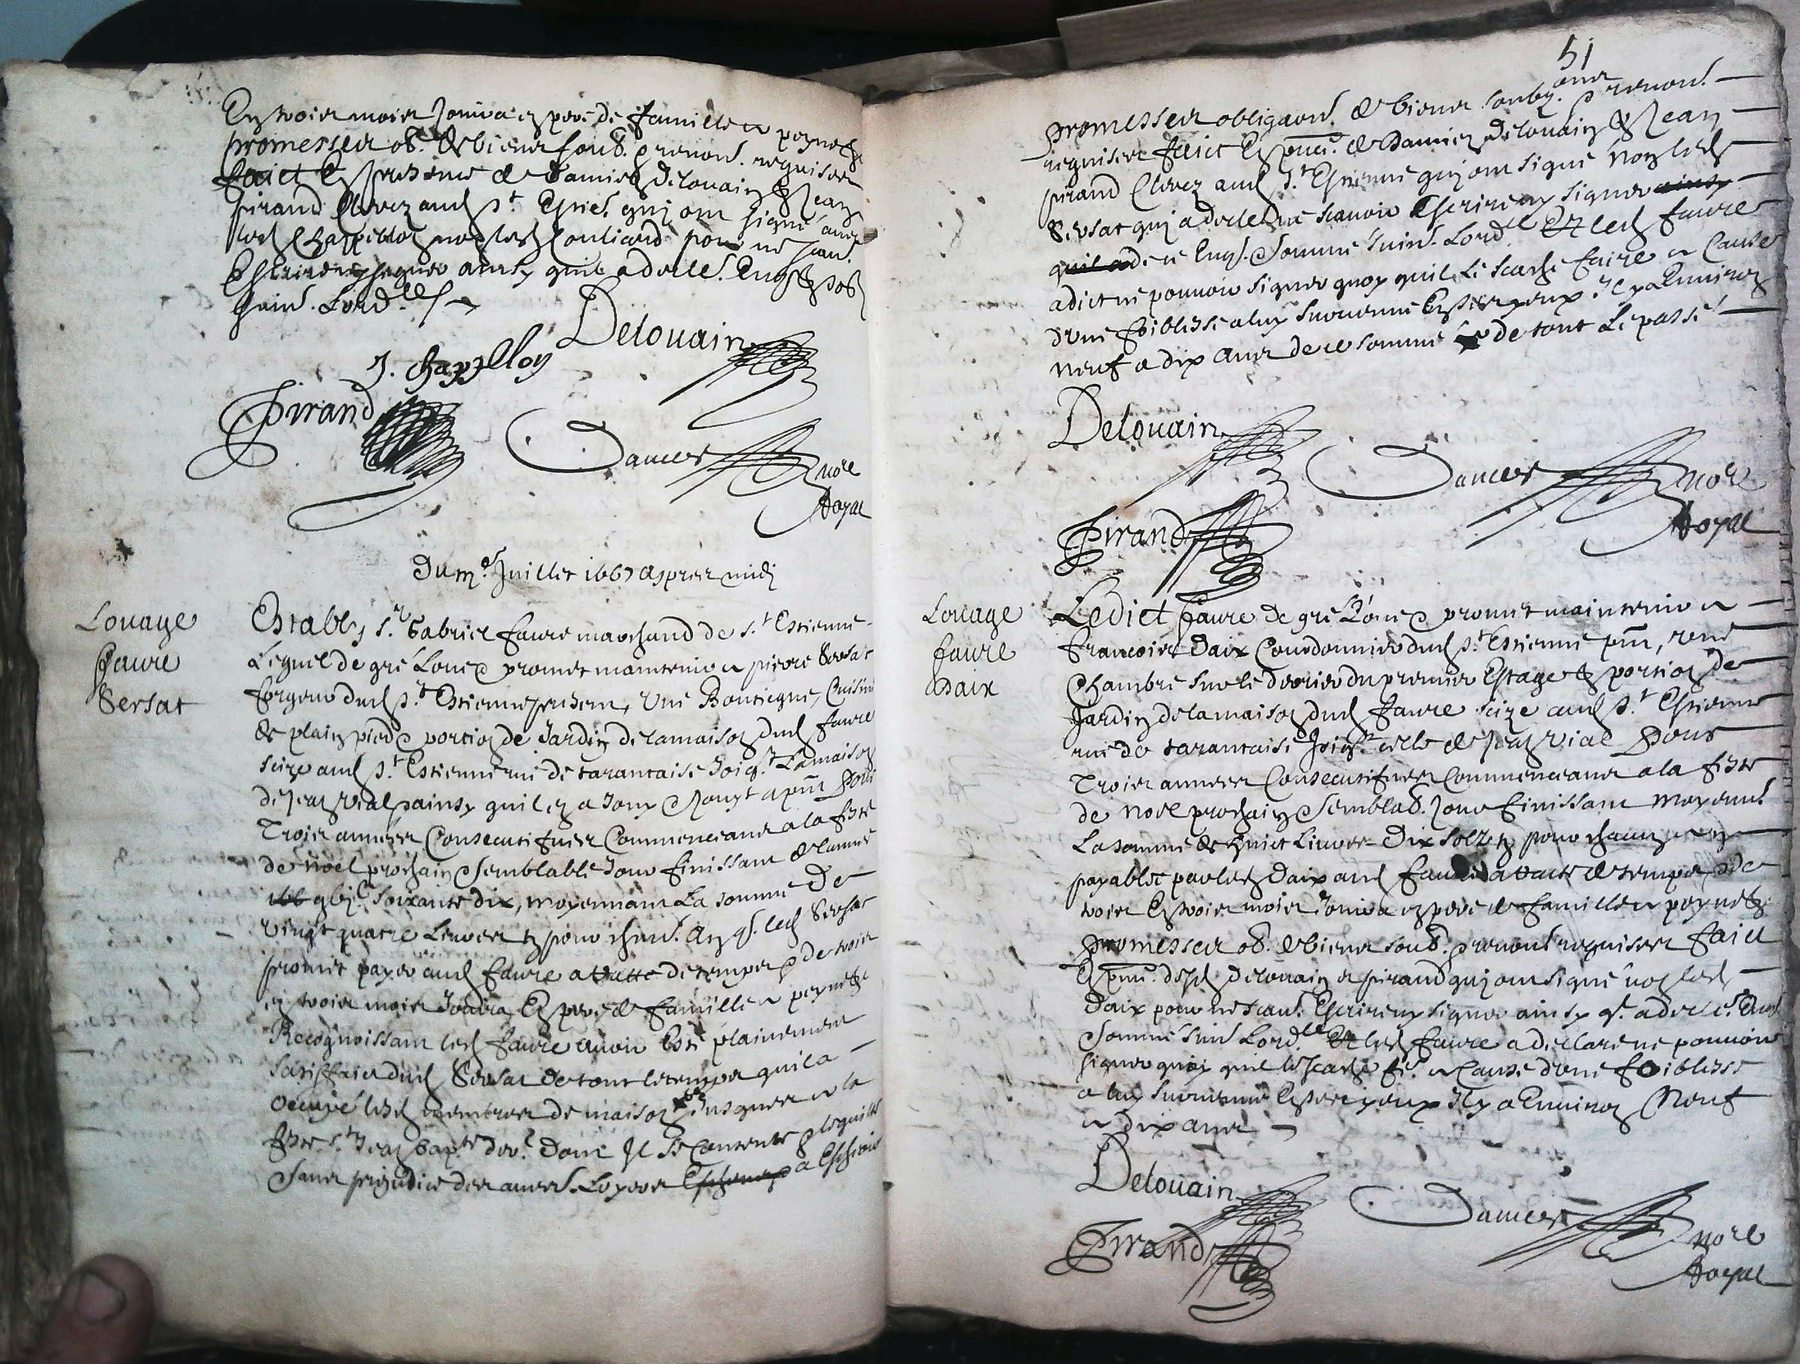 En trois mois Jouira en pere de famille a peyne &
promesses ob. & biens soub. renont. requises
faict En presence de Damien Delouain & Jean
pirand Clercz aud St Estie. qui ont signé avec
led Chappellon non led Couliard pour ne scav.
Escrire ny signer ainsy quil a declé. Enq. &
suiv. Lord.ce
Delouain
J. Chappellon
Pirand
Dancer nore
Royal
Dud. Juillet 1667 apres midi
Louage
faure
Sersat
Estably Sr. Gabriel faure marchand de St Estienne
Lequel de gré Loue & promet maintenir a pierre Sersat
forgeur dud St Estienne present, Une Bouticque, Cuisine
de plain pied & portion de Jardin de la maison dud faure
scize aud St Estienne rue de tarantaise Joig.t La maison
de Jean Vial, ainsy quil en a Jouy & Jouyt a pnt Pour
Trois années Consecutifves Commenceans a la feste
de noel prochain & semblable Jour finissant de lannée
166 gbjc. soixante dix, moyennant La somme De
vingt quatre Livres pour chun. An q. led Sersat
promet payer aud faure a ratte de temps & de trois
en trois mois Jouira En pere de famille a peyne &
Recognoissant led faure avoir Esté plainement
satisfaict dud Sersat de tout le temps quil a
occupé lesd membres de maison Jusques a la
feste St Jean bap.te der. dont Il se Contente & le quitte
sans prejudice des autres. Loyers a Eschoir
51
promesses obligaons. & biens soubz. ons renont.
requises faict En pnce. de Damien Delouain & Jean
pirand Clercz aud St Estienne qui ont signé non led
Sersat qui a declé ne scavoir Escrire ny signer ainsy
quil a de ce Enq. & sommé suiv. Lord.ce Et led faure
a dict ne pouvoir signer quoy quil le scache faire a Cause
dune foiblesse a luy survenue En ses yeux Il y a Environ
neuf a dix ans de ce sommé & de tout Le passé
Delouain
Dancer nore
Royal
Pirand
Louage
faure
Daix
Ledict faure de gré Loue & promet maintenir a
francois Daix Courdonnier dud St Estienne pnt, une
Chambre sur le derrier du premier Estage & portion de
Jardin de la maison dud faure scize aud St Estienne
rue de tarantaise Joig.t celle de Jean Vial Pour
Trois années Consecutifves Commenceans a la feste
de Noel prochain & semblab. Jour finissant moyent.
La somme de huict Livres Dix solz pour chacun an
payables par led Daix aud faure a ratte de temps & de
trois En trois mois Jouira en pere de famille a peyne &
promesses ob. & biens soub. renont. requises faict
En pnce. desd Delouain et pirand qui ont signé non led
Daix pour ne scav. Escrire ny signer ainsy q. a declé. Enq.
& sommé suiv. Lord.ce Et led faure a declaré ne pouvoir
signer quoy quil le scache fe. a Cause dune foiblesse
a luy survenue En ses yeux Il y a Environ Neuf
a dix ans
Delouain
Pirand
Dancer nore
Royal